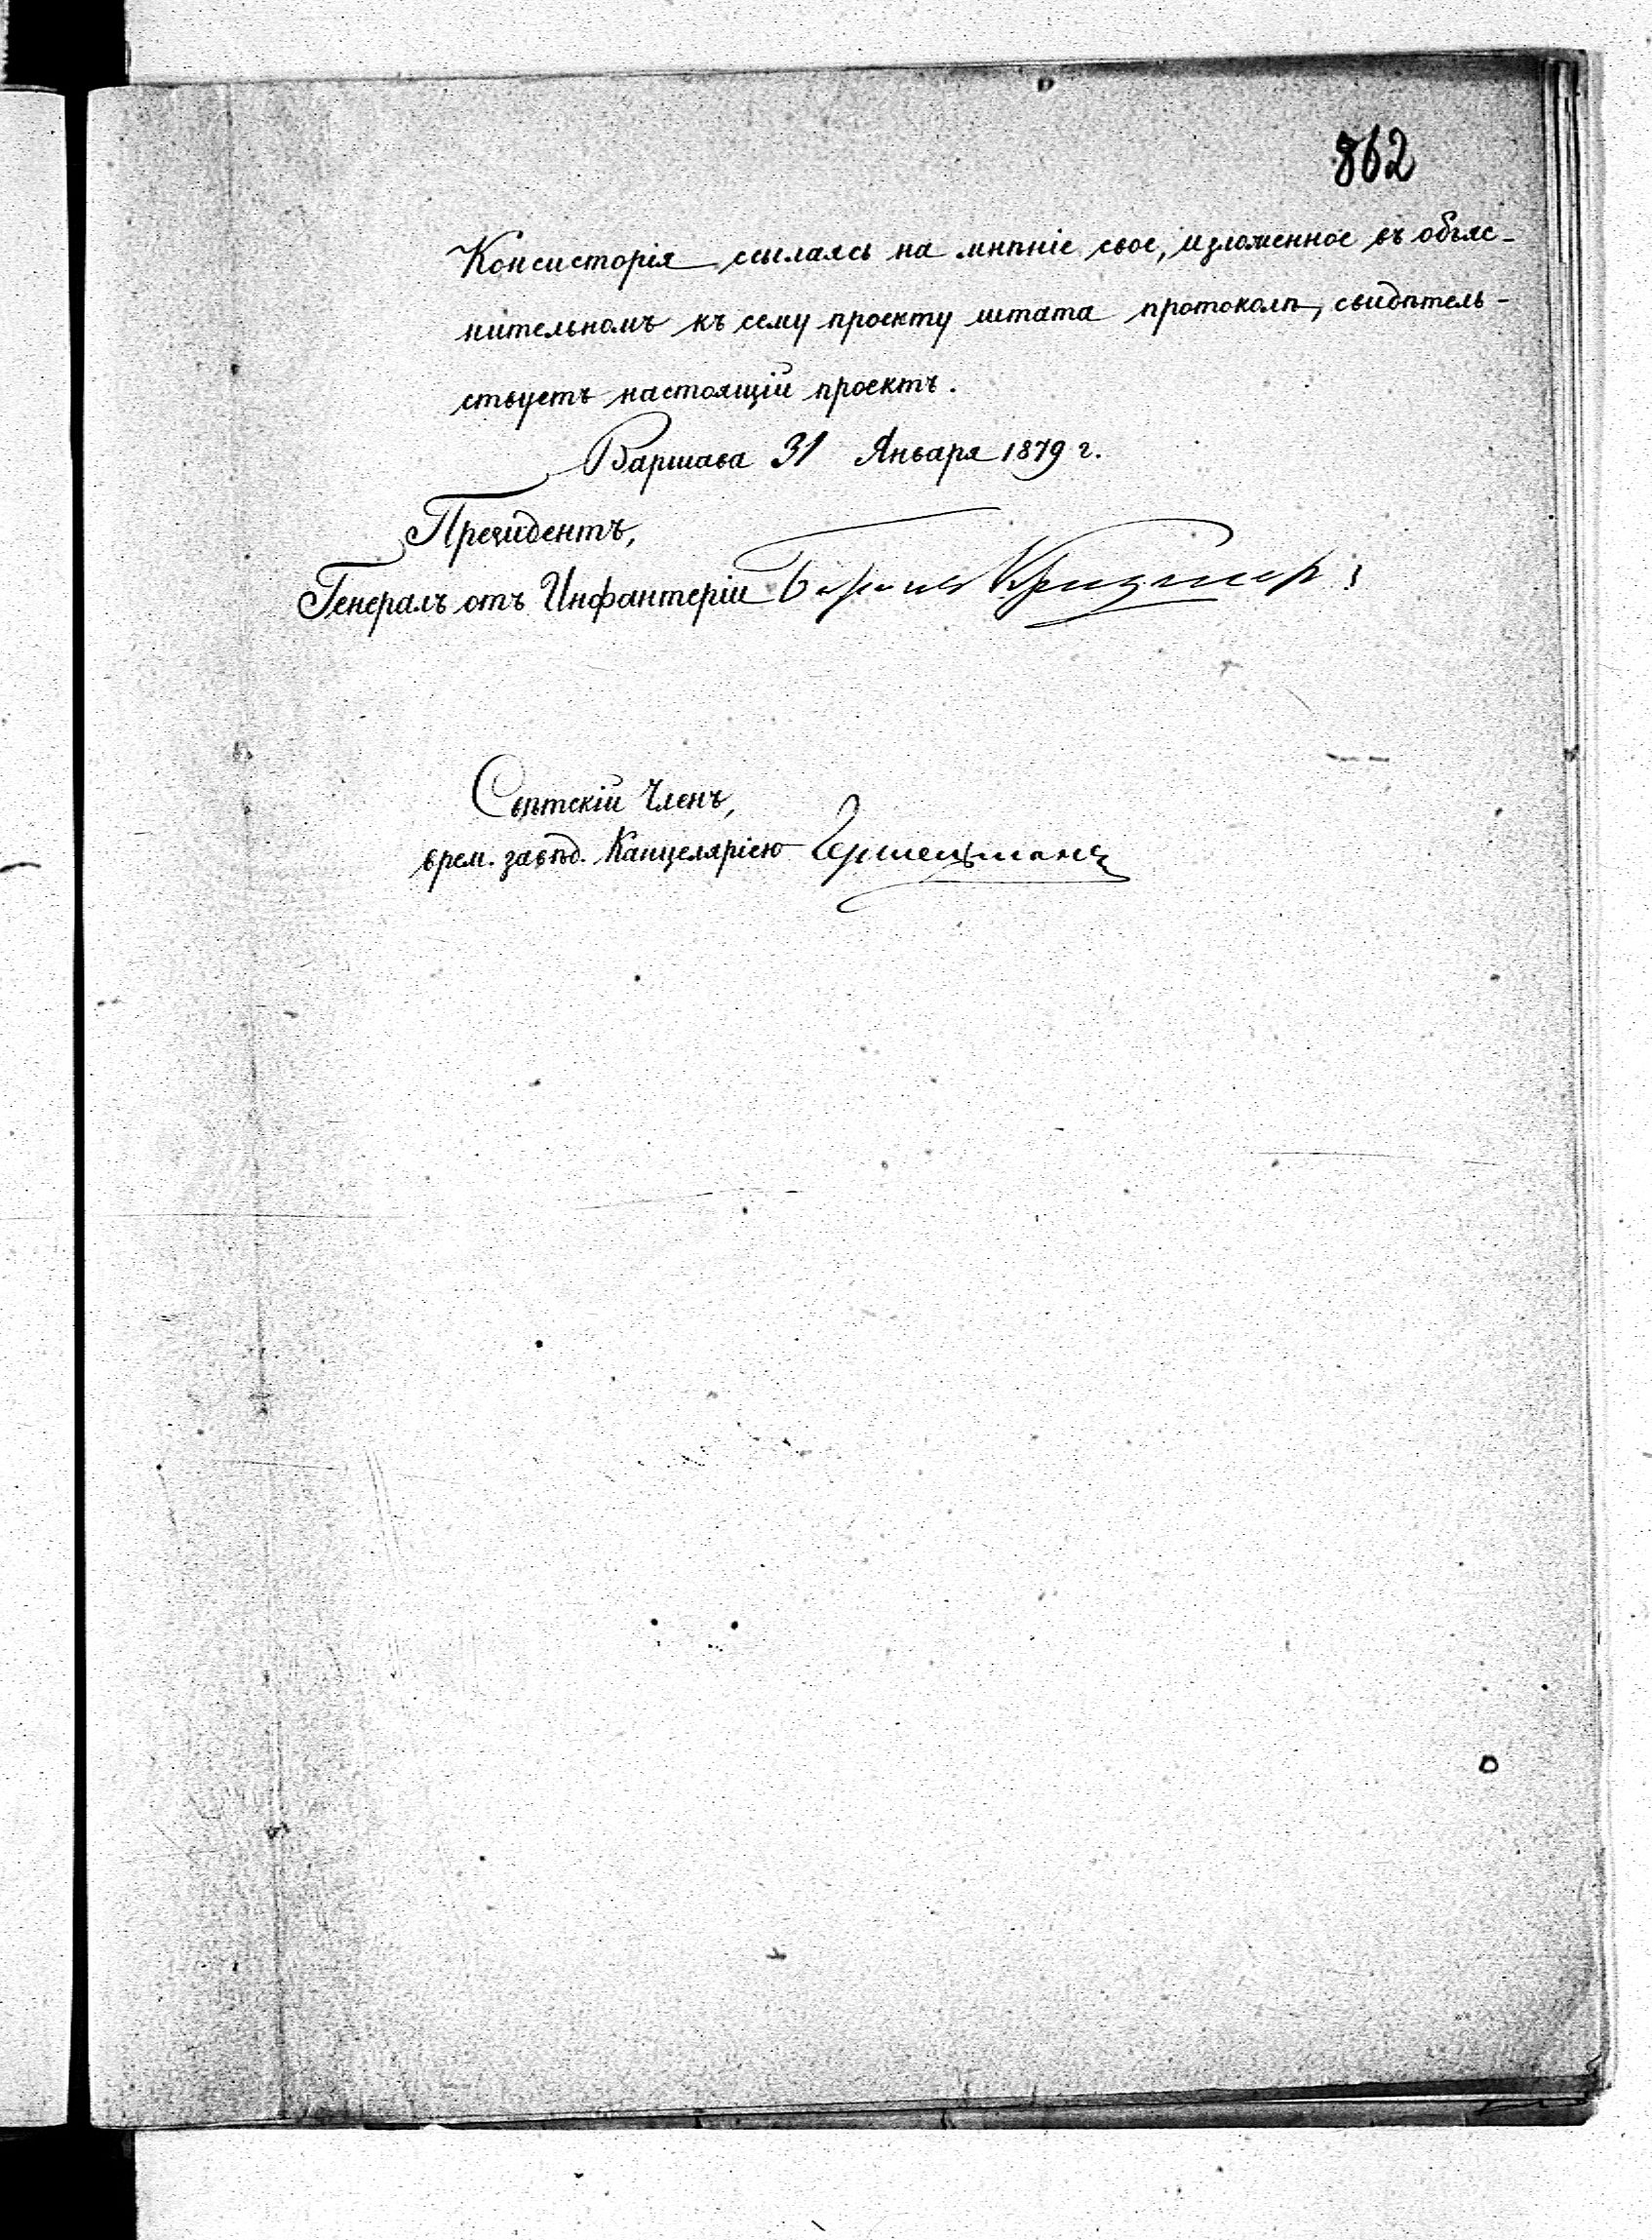 862
Консисторія ссылаясь на мнѣніе свое, изложенное въ объяс-
нительномъ къ сему проекту штата протоколѣ, свидѣтель-
ствуетъ настоящій проектъ.
Варшава 31 Января 1879 г.
Президентъ,
Генералъ отъ Инфантеріи Баронъ Криднеръ
Свѣтскій Членъ,
врем. завѣд. Канцеляріею